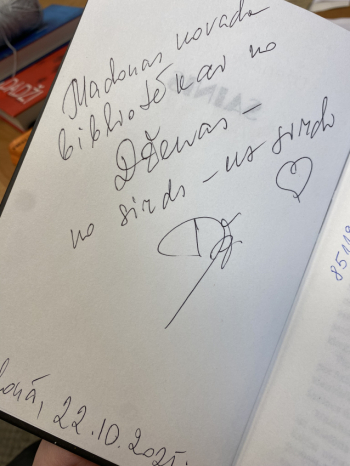 Madonas novada
bibliotēkai no
Dženas -
no sirds - uz sirdi
onā, 22.10.2025.
8511